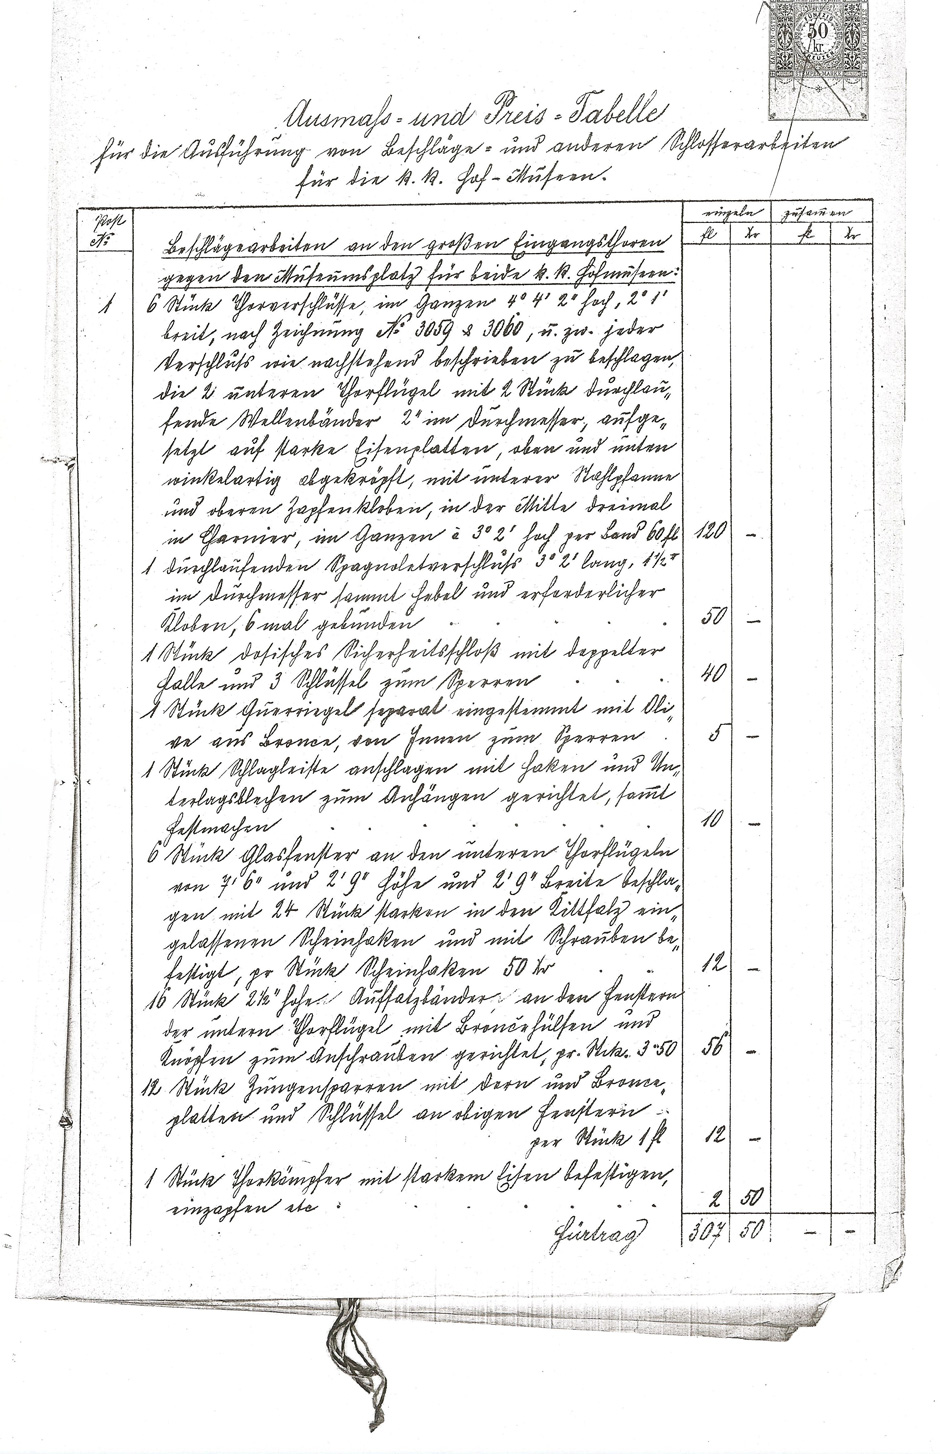 50
kr
Ausmass- und Preis-Tabelle
für die Ausführung von Beschläge- und anderen Schlosserarbeiten
für die k. k. Hof-Museen.
Post
No
einzeln zusammen
fl kr fl kr
Beschlägearbeiten an den großen Eingangsthoren
gegen den Museumsplatz für beide k. k. Hofmuseen:
1 6 Stück Thorverschlüsse, im Ganzen 4° 4' 2" hoch, 2° 1'
breit, nach Zeichnung No 3059 & 3060, u. zw. jeder
Verschluss wie nachstehend beschrieben zu beschlagen,
die 2 unteren Thorflügel mit 2 Stück durchlau-
fende Wellenbänder 2" im Durchmesser, aufge-
setzt auf starke Eisenplatten, oben und unten
winkelartig abgekröpft, mit unterer Stahlpfanne
und oberen Zapfenkloben, in der Mitte dreimal
in Charnier, im Ganzen à 3° 2' hoch per Band 60 fl 120 –
1 durchlaufenden Spagnoletverschluss 3° 2' lang, 1½"
im Durchmesser sammt Hebel und erforderlicher
Kloben, 6 mal gebunden 50 –
1 Stück dosisches Sicherheitsschloß mit doppelter
Falle und 3 Schlüssel zum Sperren 40 –
1 Stück Querriegel separat eingestemmt mit Oli-
ve aus Bronce, von Innen zum Sperren 5 –
1 Stück Schlagleiste anschlagen mit Haken und Un-
terlagsblechen zum Anhängen gerichtet, sammt
Festmachen 10 –
6 Stück Glasfenster an den unteren Thorflügeln
von 7' 6" und 2' 9" Höhe und 2' 9" Breite beschla-
gen mit 24 Stück starken in den Kittfalz ein-
gelassenen Scheinhaken und mit Schrauben be-
festigt, pr Stück Scheinhaken 50 kr 12 –
16 Stück 2½" hohe Aufsatzbänder an den Fenstern
der untern Thorflügel mit Broncehülsen und
Knöpfen zum Anschrauben gerichtet, pr. Stck. 3"50 56 –
12 Stück Zungensparren mit Dorn und Bronce-
platten und Schlüssel an obigen Fenstern
per Stück 1 fl 12 –
1 Stück Thorkämpfer mit starkem Eisen befestigen,
einzapfen etc 2 50
Fürtrag 307 50 – –